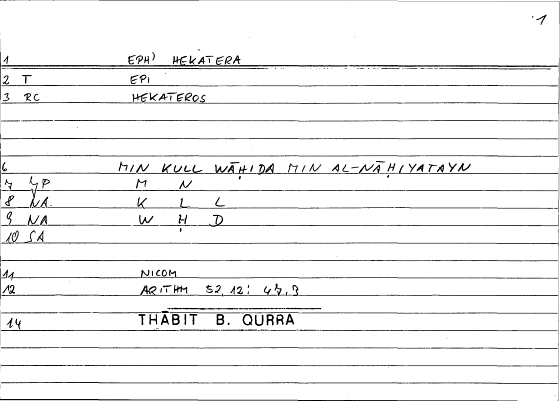 1
1 EPH) HEKATERA
2 T EPI
3 RC HEKATEROS
6 MIN KULL WĀḤIDA MIN AL-NĀḤIYATAYN
7 YP M N
8 NA K L L
9 NA W Ḥ D
10 SA
11 NICOM
12 ARITHM 52,12: 47,9
14 THĀBIT B. QURRA